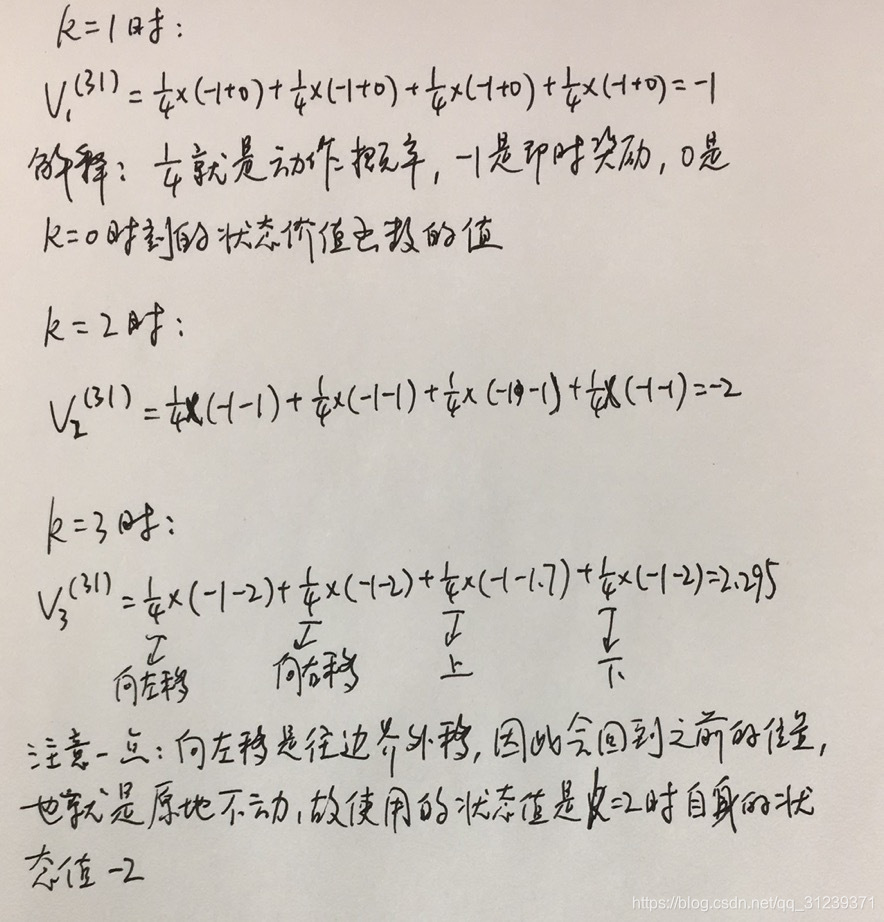 k=1时:
V₁⁽³¹⁾ = ¼×(-1+0) + ¼×(-1+0) + ¼×(-1+0) + ¼×(-1+0) = -1
解释: ¼就是动作概率, -1是即时奖励, 0是
k=0时刻的状态价值函数的值
k=2时:
V₂⁽³¹⁾ = ¼×(-1-1) + ¼×(-1-1) + ¼×(-1-1) + ¼×(-1-1) = -2
k=3时:
V₃⁽³¹⁾ = ¼×(-1-2) + ¼×(-1-2) + ¼×(-1-1.7) + ¼×(-1-2) = 2.295
向左移 向右移 上 下
注意一点: 向左移是往边界外移, 因此会回到之前的位置,
也就是原地不动, 故使用的状态值是k=2时自身的状
态值 -2
https://blog.csdn.net/qq_31239371